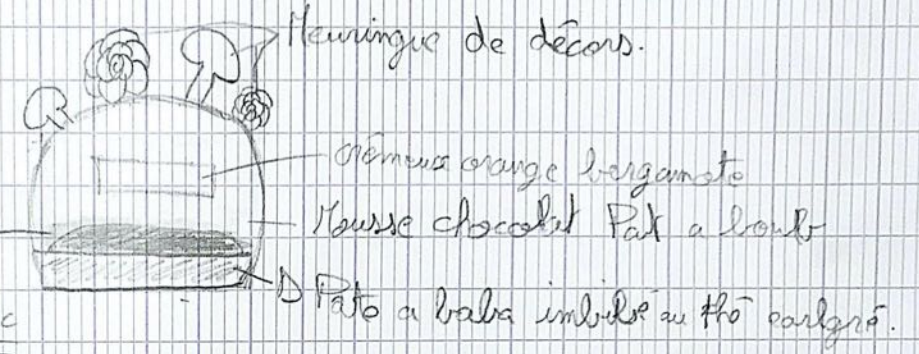 Meuringue de décors.
crémeux orange bergamote
Mousse chocolat Pat a bomb
Pate a baba imbibé au thé earlgré.